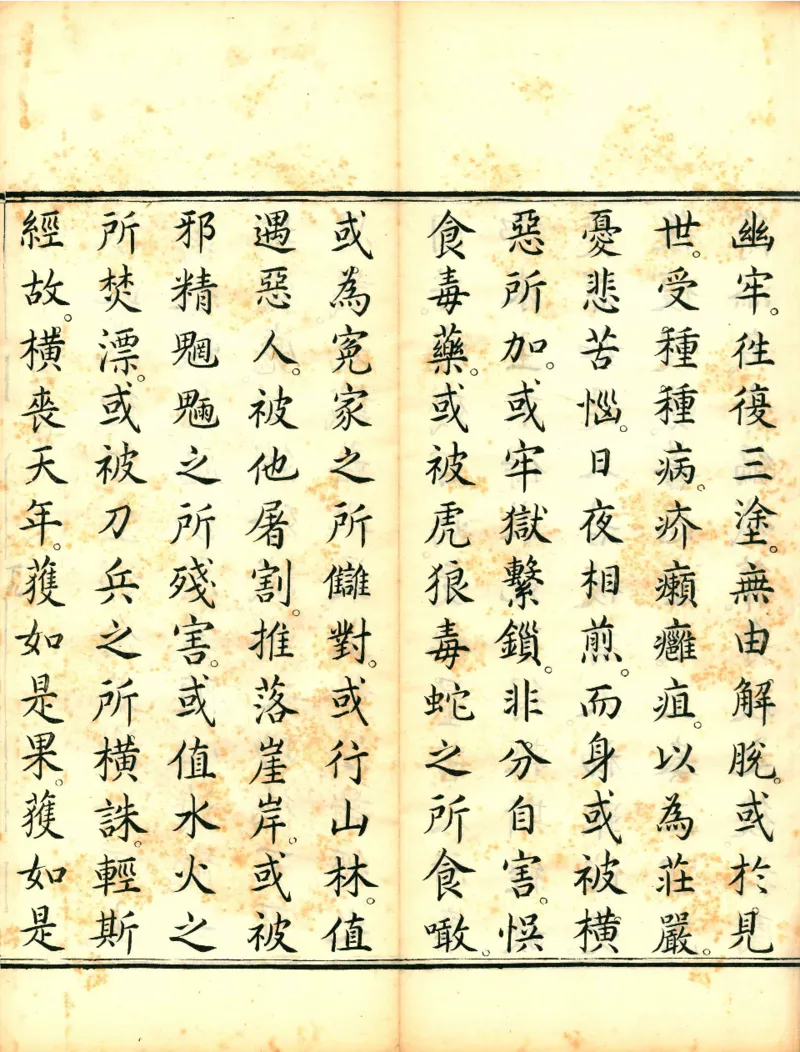 幽牢。徃復三塗。無由解脫。或於見
世。受種種病。疥癩癰疽。以為莊嚴。
憂悲苦惱。日夜相煎。而身或被橫
惡所加。或牢獄繫鎖。非分自害。悮
食毒藥。或被虎狼毒蛇之所食噉。
或為寃家之所讎對。或行山林。值
遇惡人。被他屠割。推落崖岸。或被
邪精魍魎之所殘害。或值水火之
所焚漂。或被刀兵之所橫誅。輕斯
經故。橫喪天年。獲如是果。獲如是